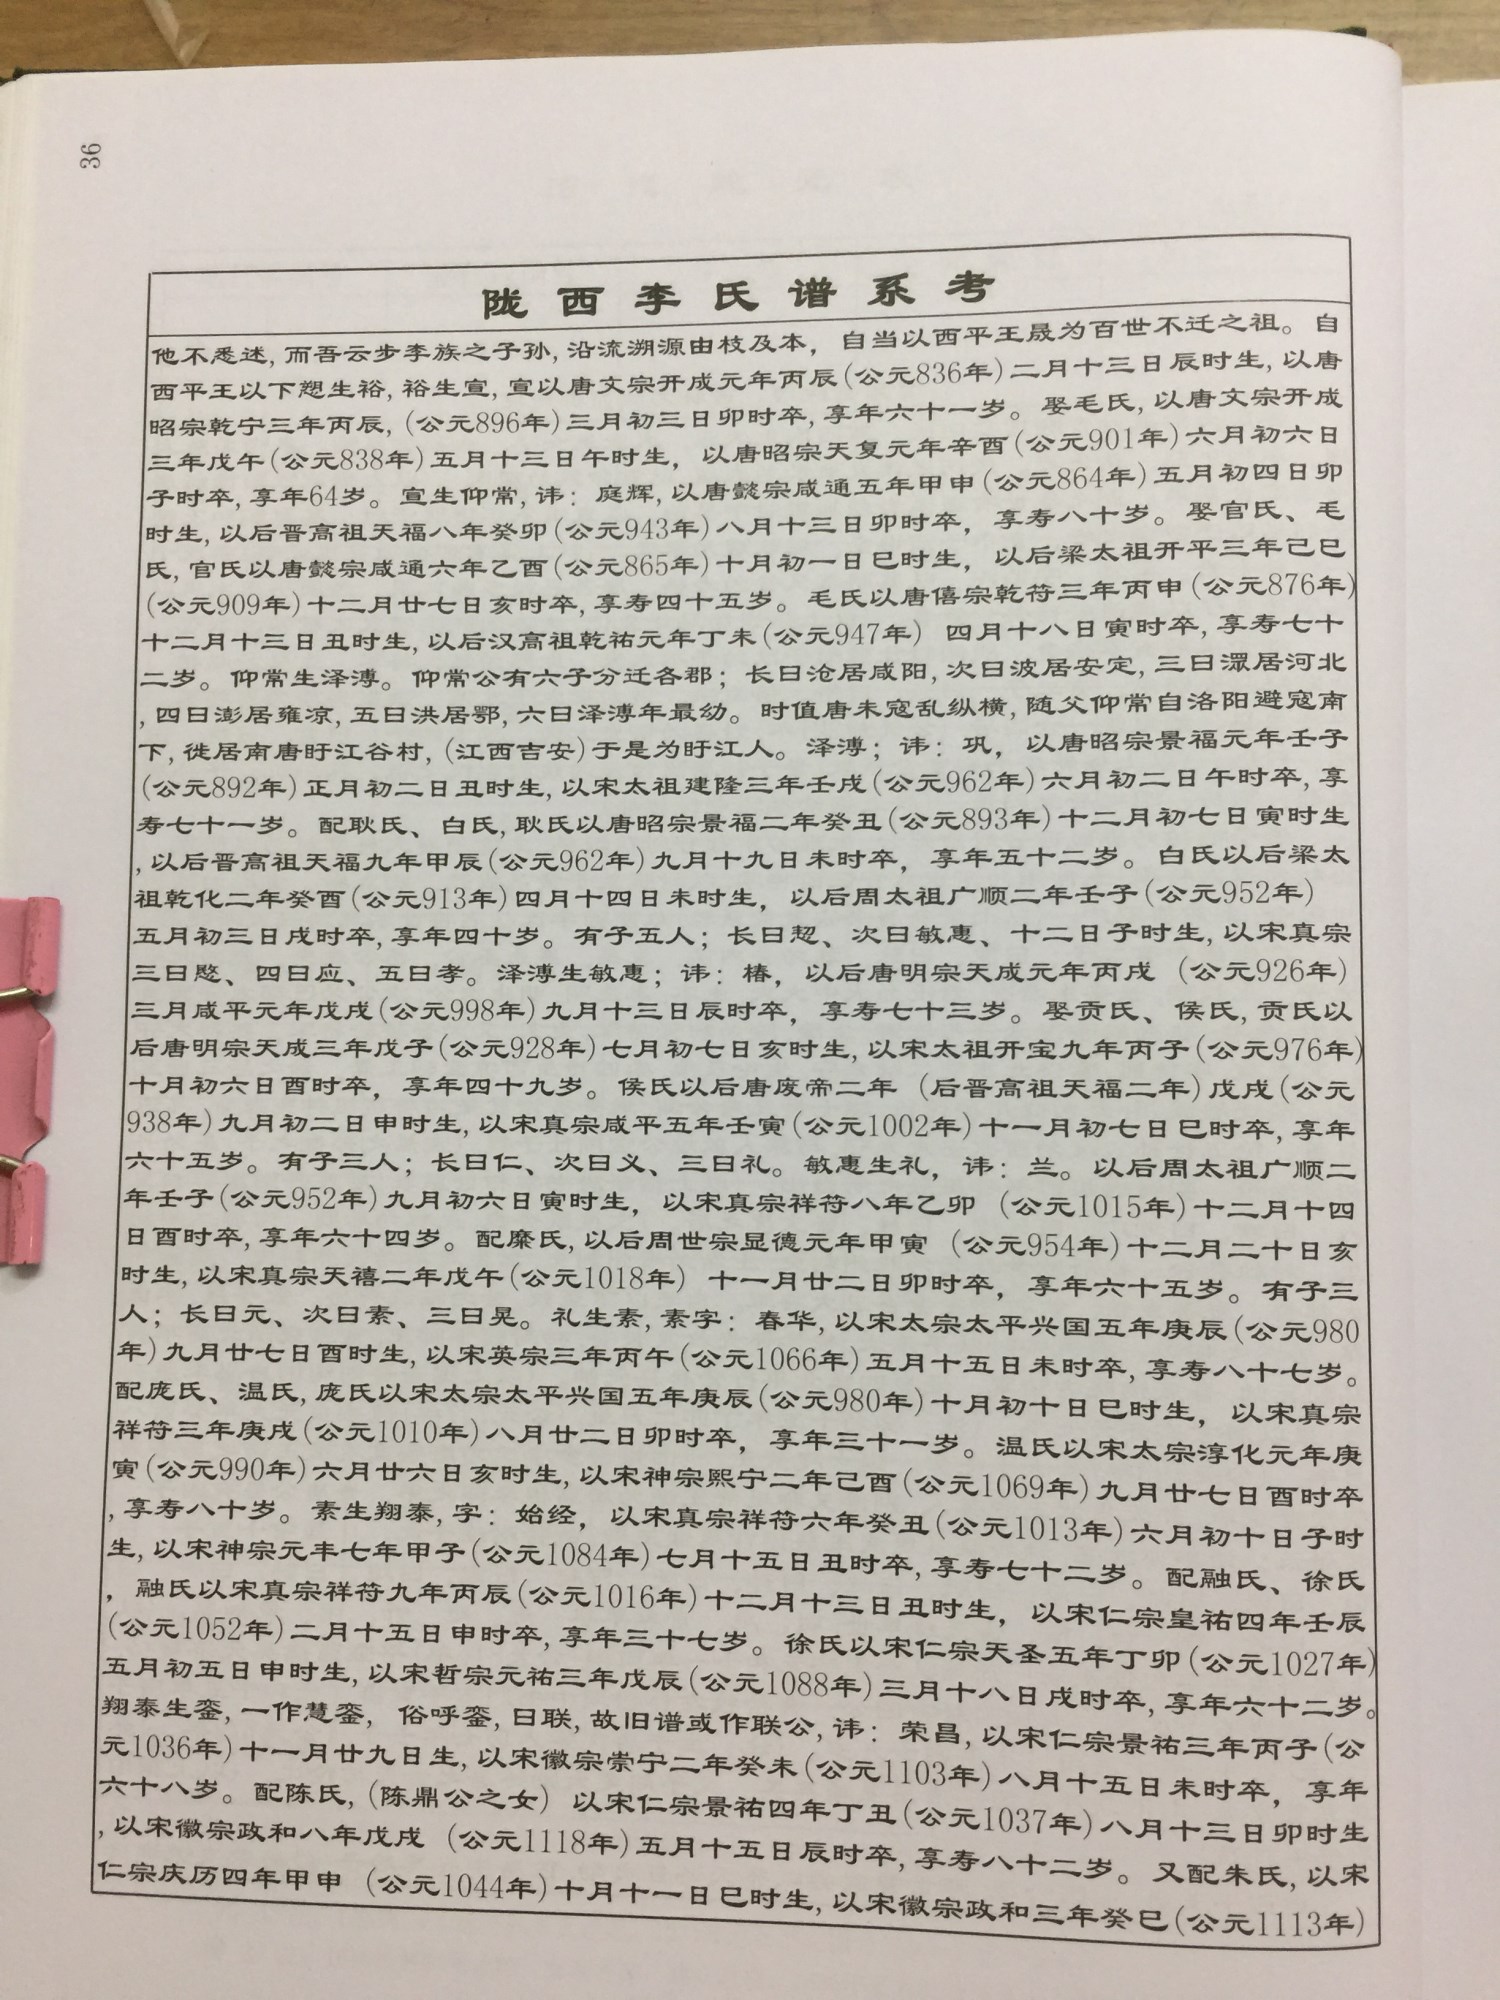 36
陇西李氏谱系考
他不悉述,而吾云步李族之子孙,沿流溯源由枝及本，自当以西平王晟为百世不迁之祖。自
西平王以下愬生裕,裕生宣,宣以唐文宗开成元年丙辰(公元836年)二月十三日辰时生,以唐
昭宗乾宁三年丙辰,(公元896年)三月初三日卯时卒,享年六十一岁。娶毛氏,以唐文宗开成
三年戊午(公元838年)五月十三日午时生，以唐昭宗天复元年辛酉(公元901年)六月初六日
子时卒,享年64岁。宣生仰常,讳：庭辉,以唐懿宗咸通五年甲申(公元864年)五月初四日卯
时生,以后晋高祖天福八年癸卯(公元943年)八月十三日卯时卒，享寿八十岁。娶官氏、毛
氏,官氏以唐懿宗咸通六年乙酉(公元865年)十月初一日巳时生，以后梁太祖开平三年己巳
(公元909年)十二月廿七日亥时卒,享寿四十五岁。毛氏以唐僖宗乾符三年丙申(公元876年)
十二月十三日丑时生,以后汉高祖乾祐元年丁未(公元947年) 四月十八日寅时卒,享寿七十
二岁。仰常生泽溥。仰常公有六子分迁各郡；长曰沧居咸阳,次曰波居安定,三曰澋居河北
,四曰澎居雍凉,五曰洪居鄂,六曰泽溥年最幼。时值唐末寇乱纵横,随父仰常自洛阳避寇南
下,徙居南唐盱江谷村,(江西吉安)于是为盱江人。泽溥；讳：巩，以唐昭宗景福元年壬子
(公元892年)正月初二日丑时生,以宋太祖建隆三年壬戌(公元962年)六月初二日午时卒,享
寿七十一岁。配耿氏、白氏,耿氏以唐昭宗景福二年癸丑(公元893年)十二月初七日寅时生
,以后晋高祖天福九年甲辰(公元962年)九月十九日未时卒，享年五十二岁。白氏以后梁太
祖乾化二年癸酉(公元913年)四月十四日未时生，以后周太祖广顺二年壬子(公元952年)
五月初三日戌时卒,享年四十岁。有子五人；长曰恝、次曰敏惠、十二日子时生,以宋真宗
三曰愍、四曰应、五曰孝。泽溥生敏惠；讳：椿，以后唐明宗天成元年丙戌 (公元926年)
三月咸平元年戊戌(公元998年)九月十三日辰时卒，享寿七十三岁。娶贡氏、侯氏,贡氏以
后唐明宗天成三年戊子(公元928年)七月初七日亥时生,以宋太祖开宝九年丙子(公元976年)
十月初六日酉时卒，享年四十九岁。侯氏以后唐废帝二年 (后晋高祖天福二年)戊戌(公元
938年)九月初二日申时生,以宋真宗咸平五年壬寅(公元1002年)十一月初七日巳时卒,享年
六十五岁。有子三人；长曰仁、次曰义、三曰礼。敏惠生礼，讳：兰。以后周太祖广顺二
年壬子(公元952年)九月初六日寅时生，以宋真宗祥符八年乙卯 (公元1015年)十二月十四
日酉时卒,享年六十四岁。配縻氏,以后周世宗显德元年甲寅 (公元954年)十二月二十日亥
时生,以宋真宗天禧二年戊午(公元1018年) 十一月廿二日卯时卒，享年六十五岁。有子三
人；长曰元、次曰素、三曰晃。礼生素,素字：春华,以宋太宗太平兴国五年庚辰(公元980
年)九月廿七日酉时生,以宋英宗三年丙午(公元1066年)五月十五日未时卒,享寿八十七岁。
配庞氏、温氏,庞氏以宋太宗太平兴国五年庚辰(公元980年)十月初十日巳时生，以宋真宗
祥符三年庚戌(公元1010年)八月廿二日卯时卒，享年三十一岁。温氏以宋太宗淳化元年庚
寅(公元990年)六月廿六日亥时生,以宋神宗熙宁二年己酉(公元1069年)九月廿七日酉时卒
,享寿八十岁。素生翔泰,字：始经，以宋真宗祥符六年癸丑(公元1013年)六月初十日子时
生,以宋神宗元丰七年甲子(公元1084年)七月十五日丑时卒,享寿七十二岁。配融氏、徐氏
，融氏以宋真宗祥符九年丙辰(公元1016年)十二月十三日丑时生，以宋仁宗皇祐四年壬辰
(公元1052年)二月十五日申时卒,享年三十七岁。徐氏以宋仁宗天圣五年丁卯(公元1027年)
五月初五日申时生,以宋哲宗元祐三年戊辰(公元1088年)三月十八日戌时卒,享年六十二岁。
翔泰生銮,一作慧銮，俗呼銮,曰联,故旧谱或作联公,讳：荣昌,以宋仁宗景祐三年丙子(公
元1036年)十一月廿九日生,以宋徽宗崇宁二年癸未(公元1103年)八月十五日未时卒，享年
六十八岁。配陈氏,(陈鼎公之女) 以宋仁宗景祐四年丁丑(公元1037年)八月十三日卯时生
,以宋徽宗政和八年戊戌 (公元1118年)五月十五日辰时卒,享寿八十二岁。又配朱氏,以宋
仁宗庆历四年甲申 (公元1044年)十月十一日巳时生,以宋徽宗政和三年癸巳(公元1113年)